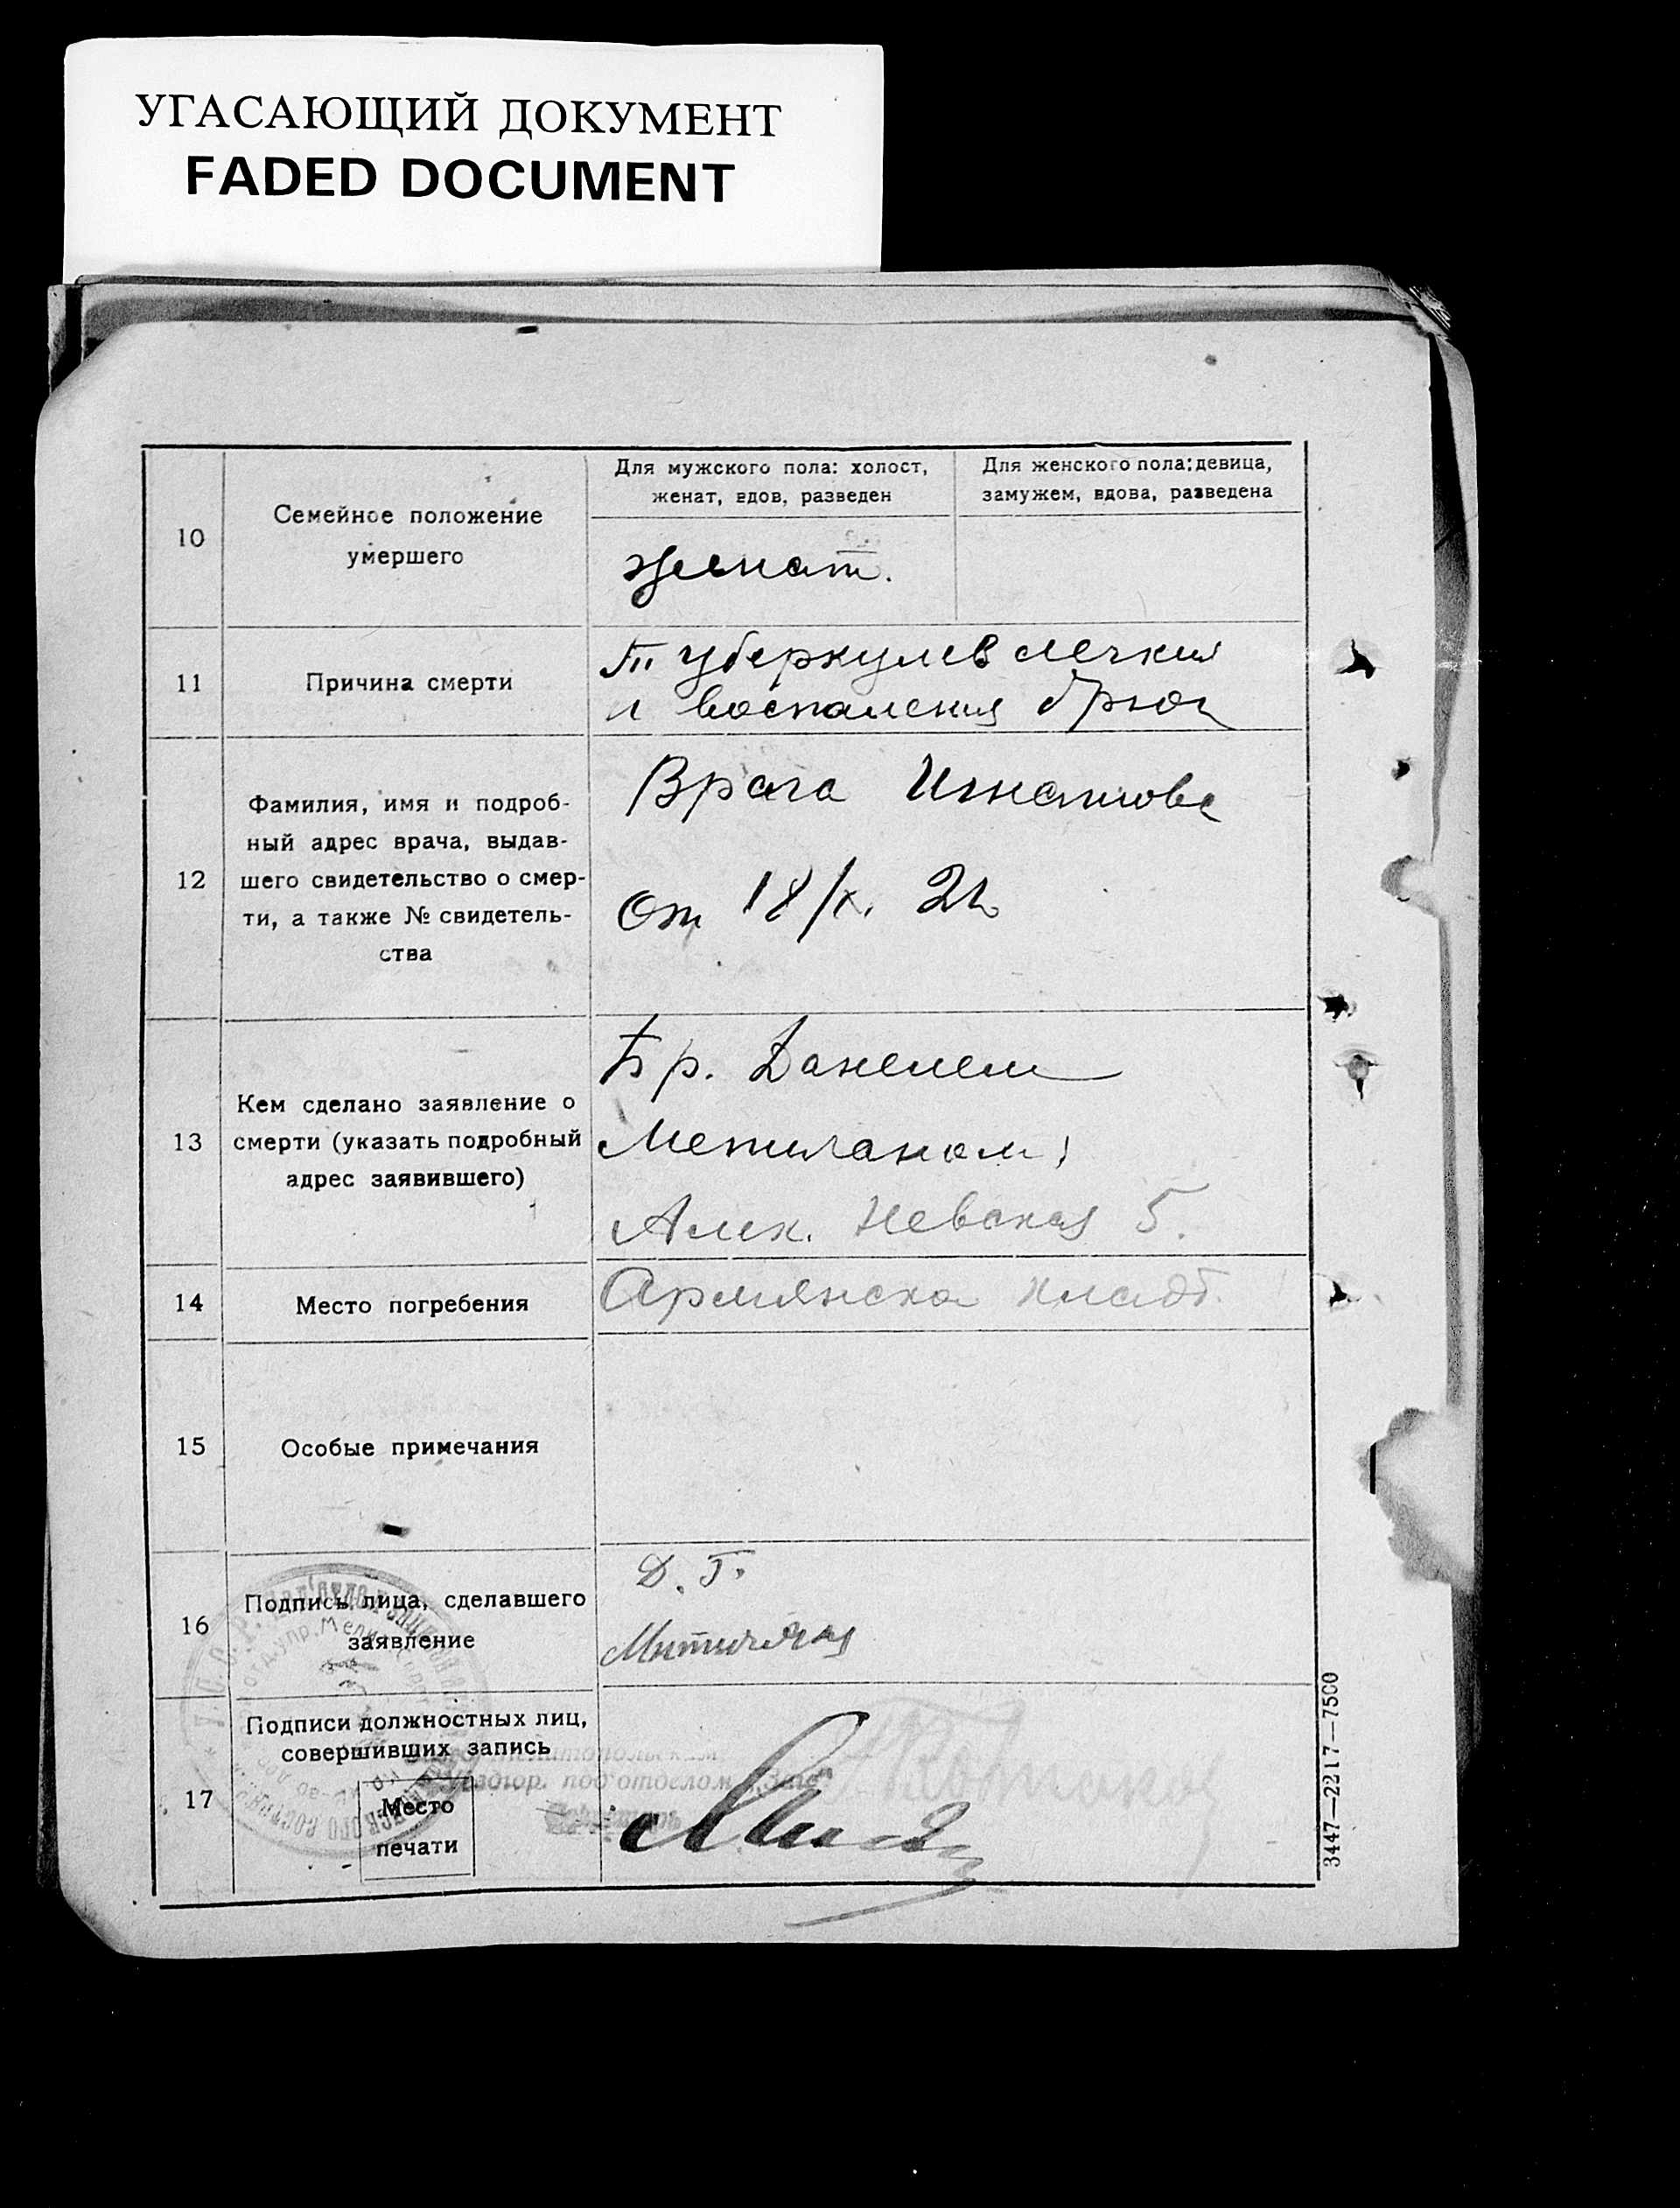 УГАСАЮЩИЙ ДОКУМЕНТ
FADED DOCUMENT
10
Семейное положение
умершего
Для мужского пола: холост,
женат, вдов, разведен
Для женского пола: девица,
замужем, вдова, разведена
женат.
11
Причина смерти
Туберкулев легких
и воспаления брюш
12
Фамилия, имя и подроб-
ный адрес врача, выдав-
шего свидетельство о смер-
ти, а также № свидетель-
ства
Врача Игнатова
от 18/X. 21
13
Кем сделано заявление о
смерти (указать подробный
адрес заявившего)
Бр. Данелем
Алек. Невская 5.
14
Место погребения
Армянска кладб.
15
Особые примечания
16
Подпись лица, сделавшего
заявление
Д. Г.
17
Подписи должностных лиц,
совершивших запись
Место
печати
3447—2217—7500